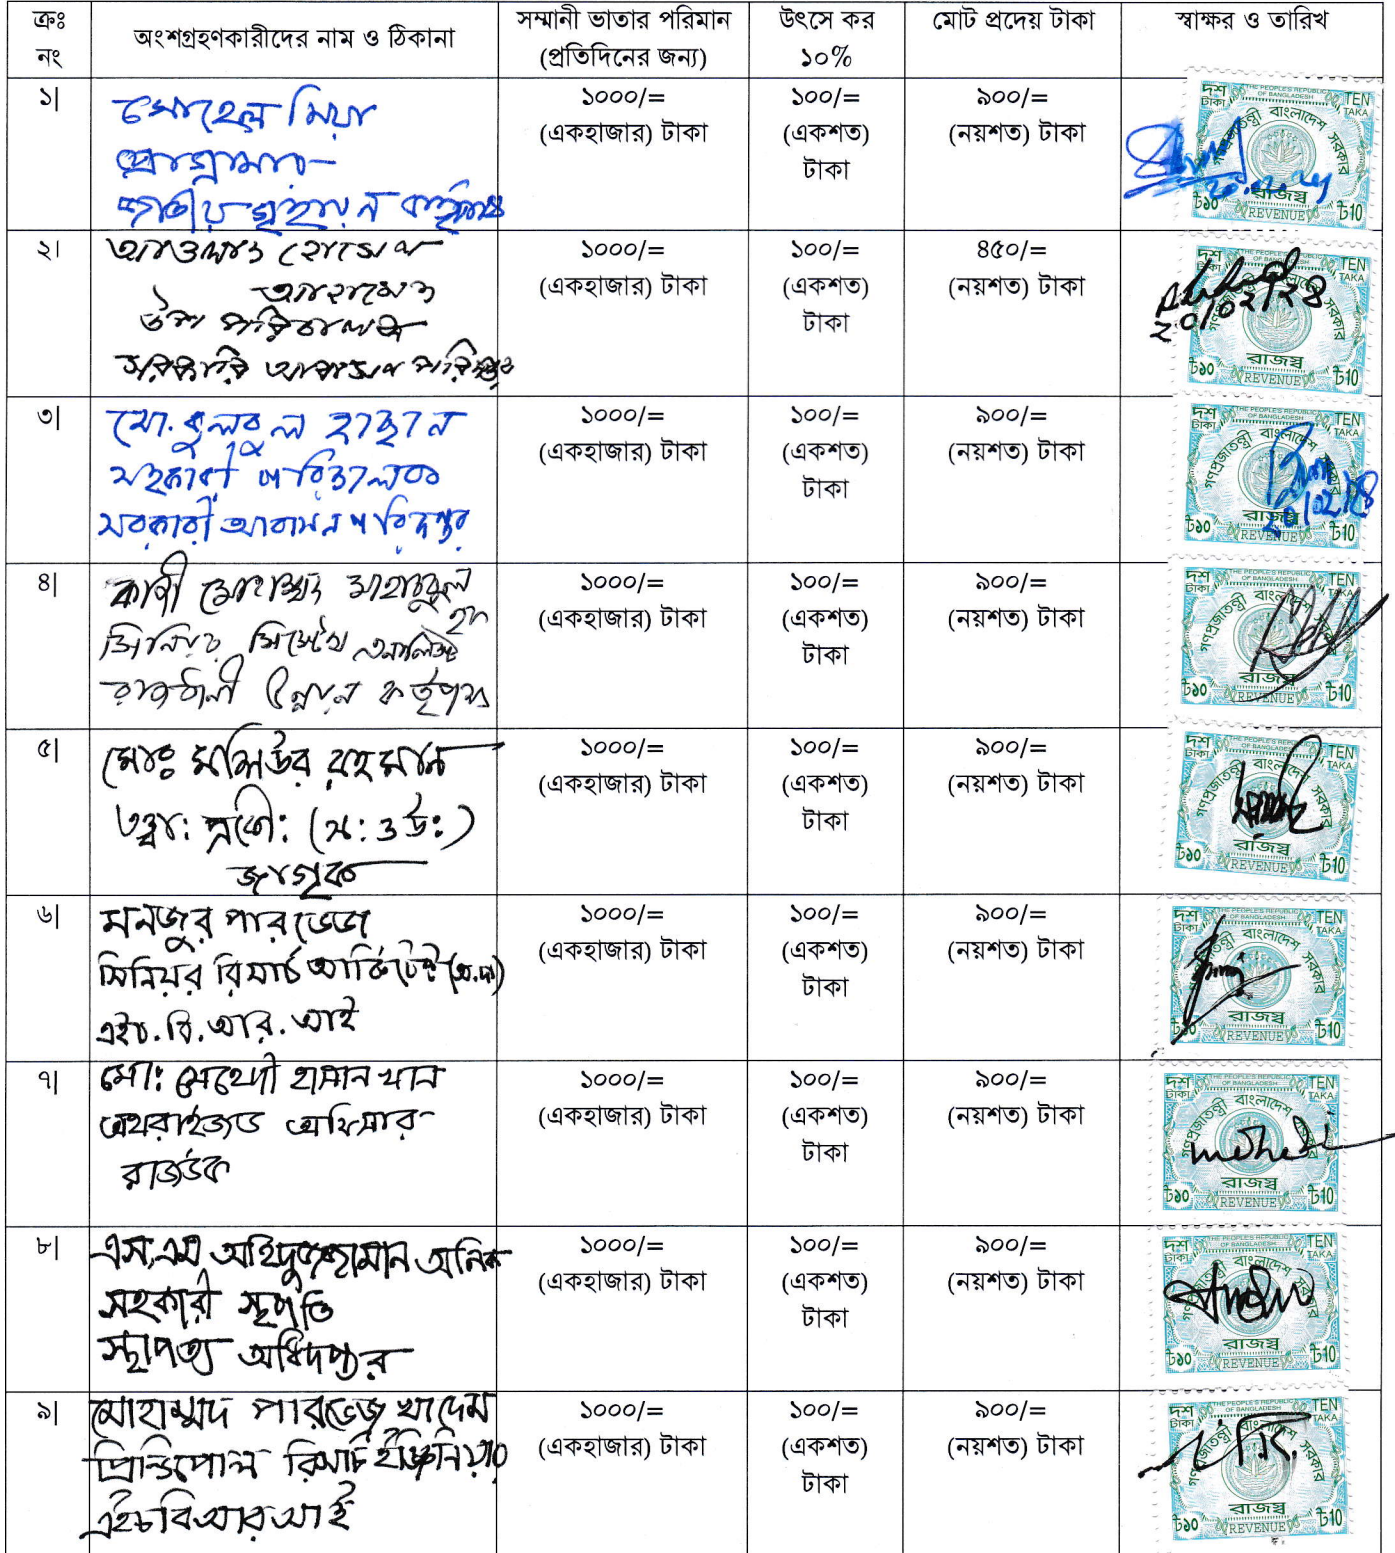 ক্রঃ নং
অংশগ্রহণকারীদের নাম ও ঠিকানা
সম্মানী ভাতার পরিমান (প্রতিদিনের জন্য)
উৎসে কর ১০%
মোট প্রদেয় টাকা
স্বাক্ষর ও তারিখ
১|
সোহেল মিয়া
প্রোগ্রামার
জাতীয় গৃহায়ন কর্তৃপক্ষ
১০০০/=
(একহাজার) টাকা
১০০/=
(একশত)
টাকা
৯০০/=
(নয়শত) টাকা
দশ টাকা
THE PEOPLE'S REPUBLIC OF BANGLADESH
TEN TAKA
গণপ্রজাতন্ত্রী বাংলাদেশ সরকার
রাজস্ব
৳১০ REVENUE ৳10
২।
আওলাদ হোসেন
আহামেদ
উপ পরিচালক
সরকারি আবাসন পরিদপ্তর
১০০০/=
(একহাজার) টাকা
১০০/=
(একশত)
টাকা
৪৫০/=
(নয়শত) টাকা
২০/০২/২৪
দশ টাকা
THE PEOPLE'S REPUBLIC OF BANGLADESH
TEN TAKA
গণপ্রজাতন্ত্রী বাংলাদেশ সরকার
রাজস্ব
৳১০ REVENUE ৳10
৩|
মো. বুলবুল হাছান
সহকারী পরিচালক
সরকারী আবাসন পরিদপ্তর
১০০০/=
(একহাজার) টাকা
১০০/=
(একশত)
টাকা
৯০০/=
(নয়শত) টাকা
দশ টাকা
THE PEOPLE'S REPUBLIC OF BANGLADESH
TEN TAKA
গণপ্রজাতন্ত্রী বাংলাদেশ সরকার
২০/০২/২৪
রাজস্ব
৳১০ REVENUE ৳10
৪|
কাজী মোহাম্মদ মাহাবুবুল
হক
সিনিয়র সিস্টেম এনালিস্ট
রাজধানী উন্নয়ন কর্তৃপক্ষ
১০০০/=
(একহাজার) টাকা
১০০/=
(একশত)
টাকা
৯০০/=
(নয়শত) টাকা
দশ টাকা
THE PEOPLE'S REPUBLIC OF BANGLADESH
TEN TAKA
গণপ্রজাতন্ত্রী বাংলাদেশ সরকার
রাজস্ব
৳১০ REVENUE ৳10
৫|
মোঃ মলিউর রহমান
তত্ত্বা: প্রকৌ: (স: ও উ:)
জাগৃক
১০০০/=
(একহাজার) টাকা
১০০/=
(একশত)
টাকা
৯০০/=
(নয়শত) টাকা
দশ টাকা
THE PEOPLE'S REPUBLIC OF BANGLADESH
TEN TAKA
গণপ্রজাতন্ত্রী বাংলাদেশ সরকার
রাজস্ব
৳১০ REVENUE ৳10
৬|
মনজুর পারভেজ
সিনিয়র রিসার্চ আর্কিটেক্ট (অ.দা)
এইচ.বি.আর.আই
১০০০/=
(একহাজার) টাকা
১০০/=
(একশত)
টাকা
৯০০/=
(নয়শত) টাকা
দশ টাকা
THE PEOPLE'S REPUBLIC OF BANGLADESH
TEN TAKA
গণপ্রজাতন্ত্রী বাংলাদেশ সরকার
রাজস্ব
৳১০ REVENUE ৳10
৭|
মো: মেহেদী হাসান খান
অথরাইজড অফিসার
রাজউক
১০০০/=
(একহাজার) টাকা
১০০/=
(একশত)
টাকা
৯০০/=
(নয়শত) টাকা
দশ টাকা
THE PEOPLE'S REPUBLIC OF BANGLADESH
TEN TAKA
গণপ্রজাতন্ত্রী বাংলাদেশ সরকার
mehedi
রাজস্ব
৳১০ REVENUE ৳10
৮|
এস.এম. অহিদুজ্জামান অনিক
সহকারী স্থপতি
স্থাপত্য অধিদপ্তর
১০০০/=
(একহাজার) টাকা
১০০/=
(একশত)
টাকা
৯০০/=
(নয়শত) টাকা
দশ টাকা
THE PEOPLE'S REPUBLIC OF BANGLADESH
TEN TAKA
গণপ্রজাতন্ত্রী বাংলাদেশ সরকার
রাজস্ব
৳১০ REVENUE ৳10
৯|
মোহাম্মদ পারভেজ খাদেম
প্রিন্সিপাল রিসার্চ ইঞ্জিনিয়ার
এইচবিআরআই
১০০০/=
(একহাজার) টাকা
১০০/=
(একশত)
টাকা
৯০০/=
(নয়শত) টাকা
দশ টাকা
THE PEOPLE'S REPUBLIC OF BANGLADESH
TEN TAKA
গণপ্রজাতন্ত্রী বাংলাদেশ সরকার
রাজস্ব
৳১০ REVENUE ৳10